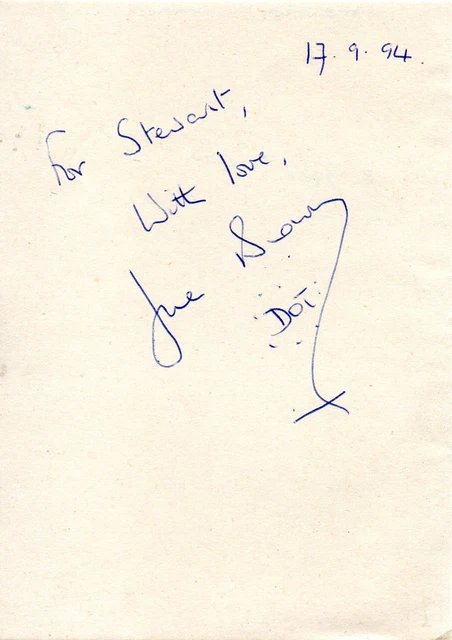 17.9.94.
For Stewart,
With love,
June Brown
"DOT"
X